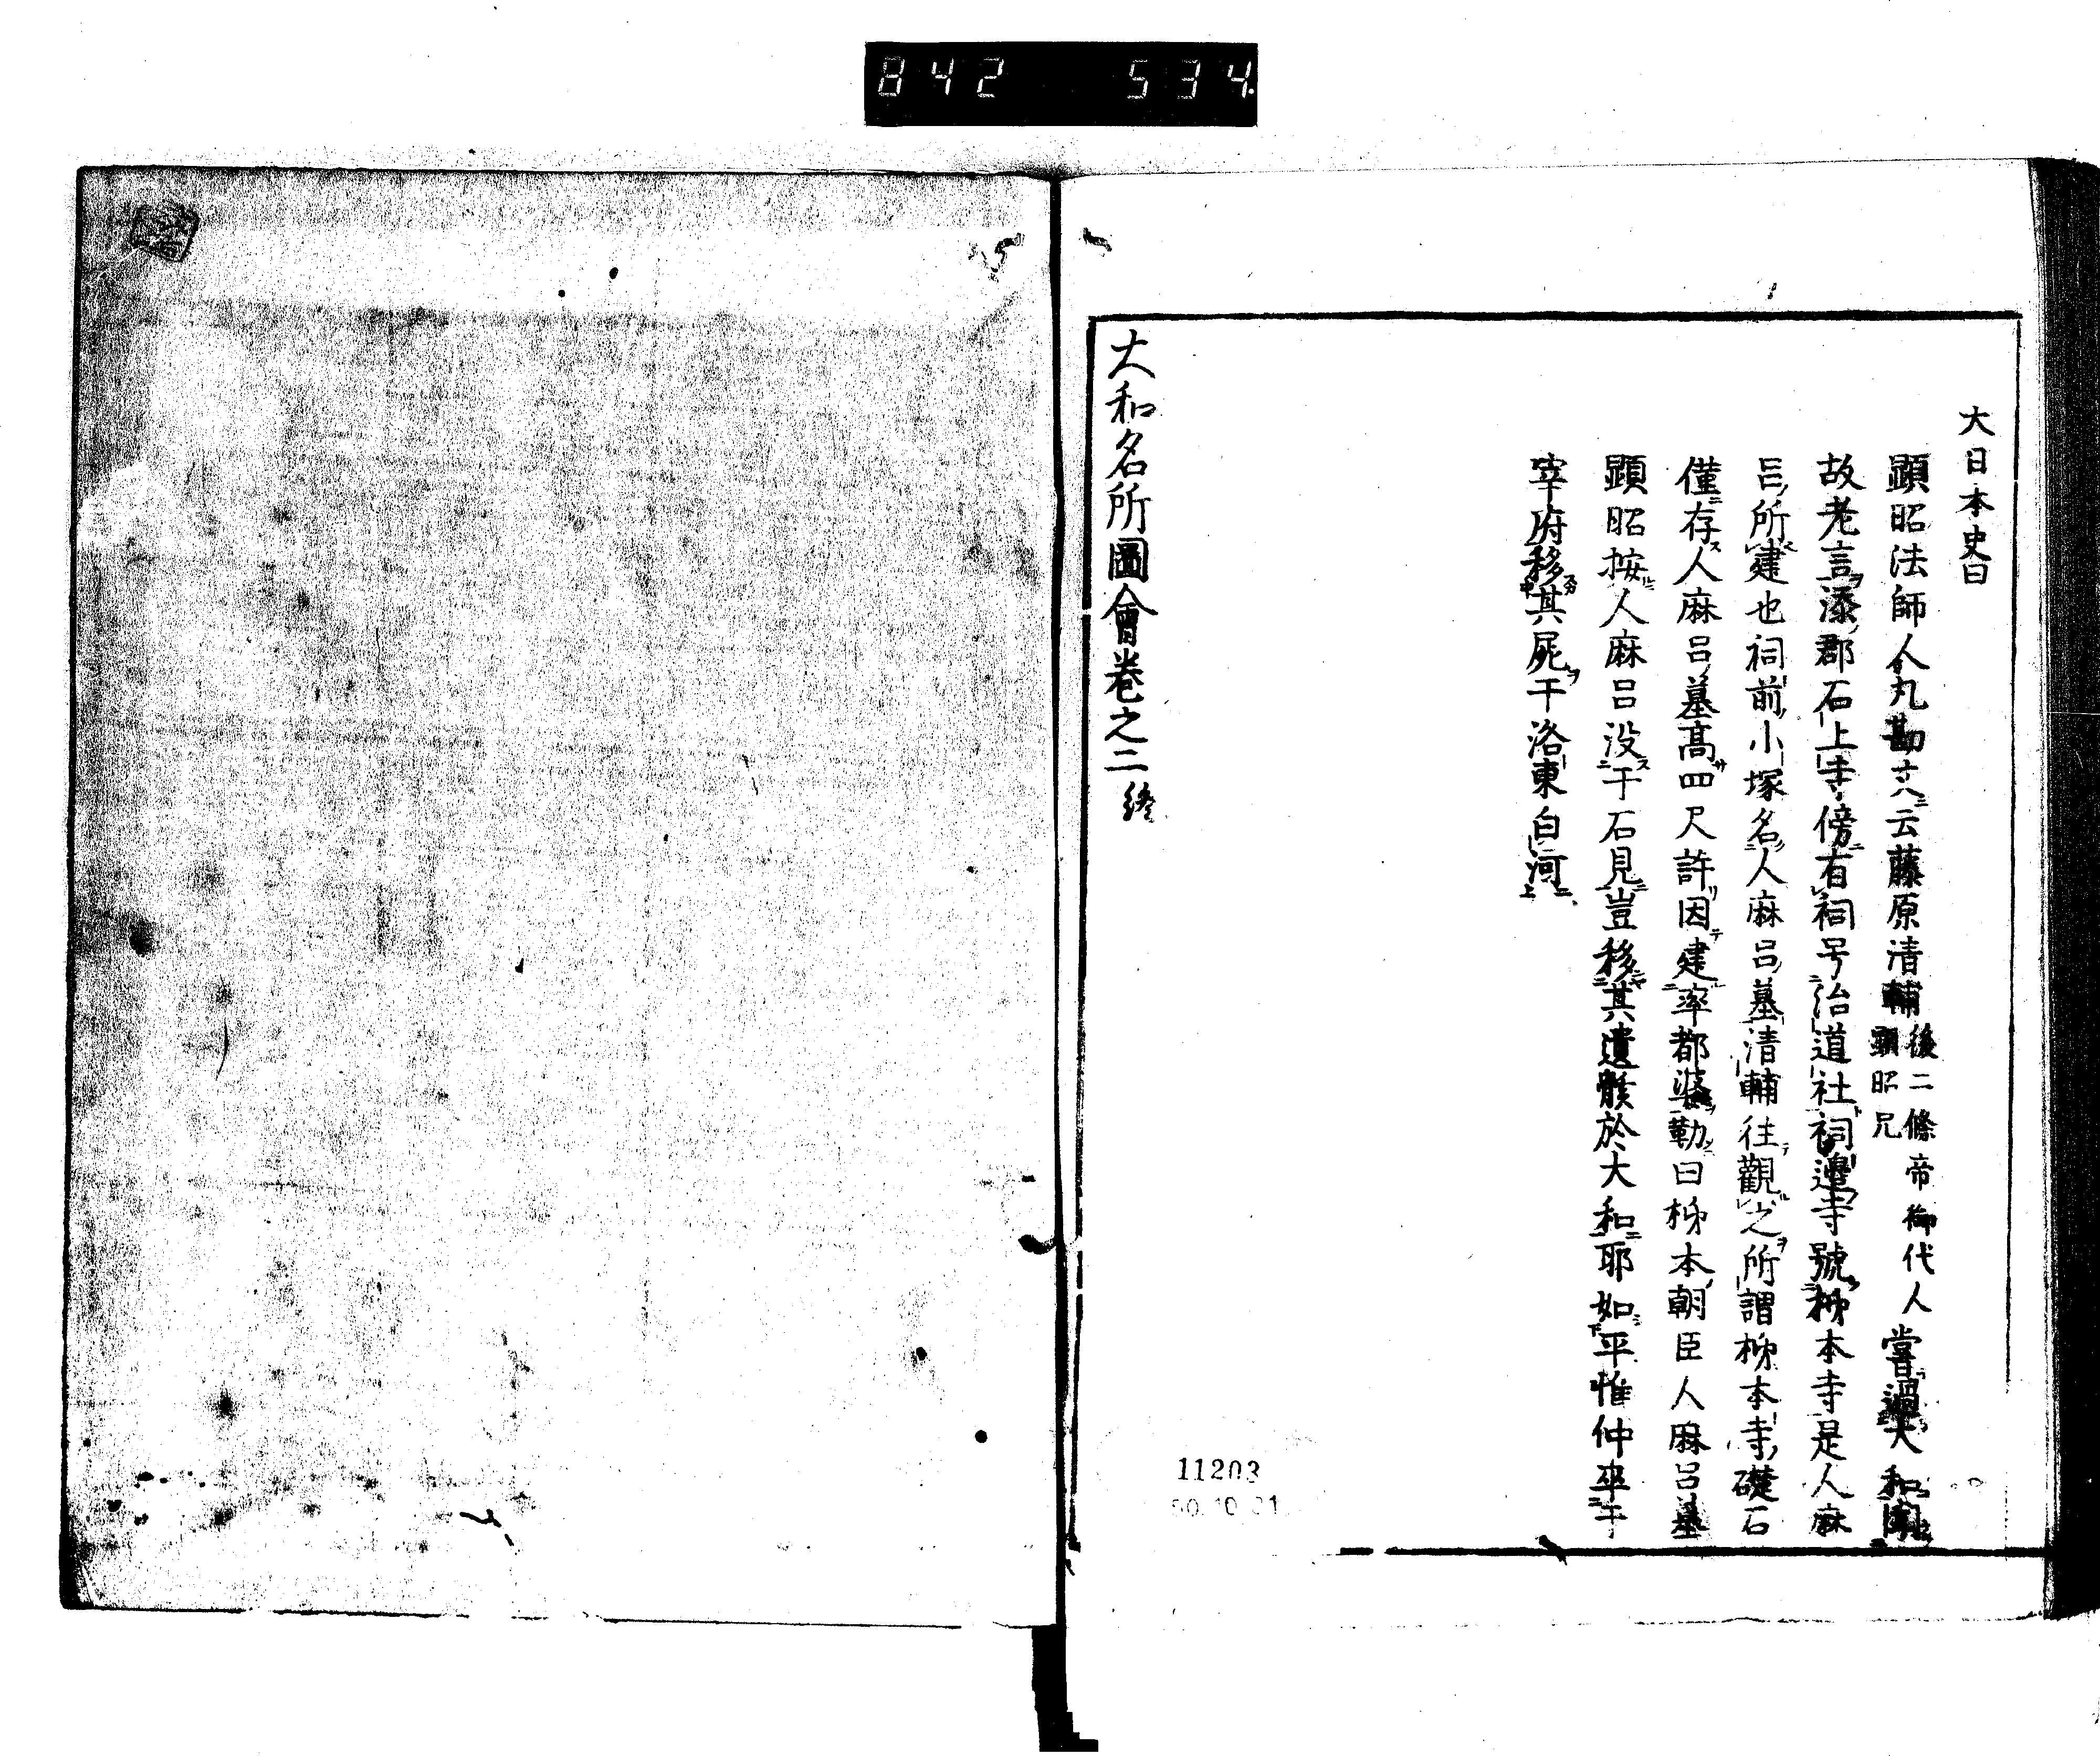 842 534
大日本史曰
顕昭法師人丸勘文云藤原清輔後二條帝御代人顕昭兄嘗過大和国
故老言添郡石上寺傍有祠号治道社祠邉寺號柹本寺是人麻
呂所建也祠前小塚名人麻呂墓清輔往觀之所謂柹本寺礎石
僅存人麻呂墓髙四尺許因建率都婆勒曰柹本朝臣人麻呂墓
顕昭按人麻呂没于石見豈移其遺骸於大和耶如平惟仲卒于
宰府移其屍于洛東白河
大和名所圖會巻之二終
11203